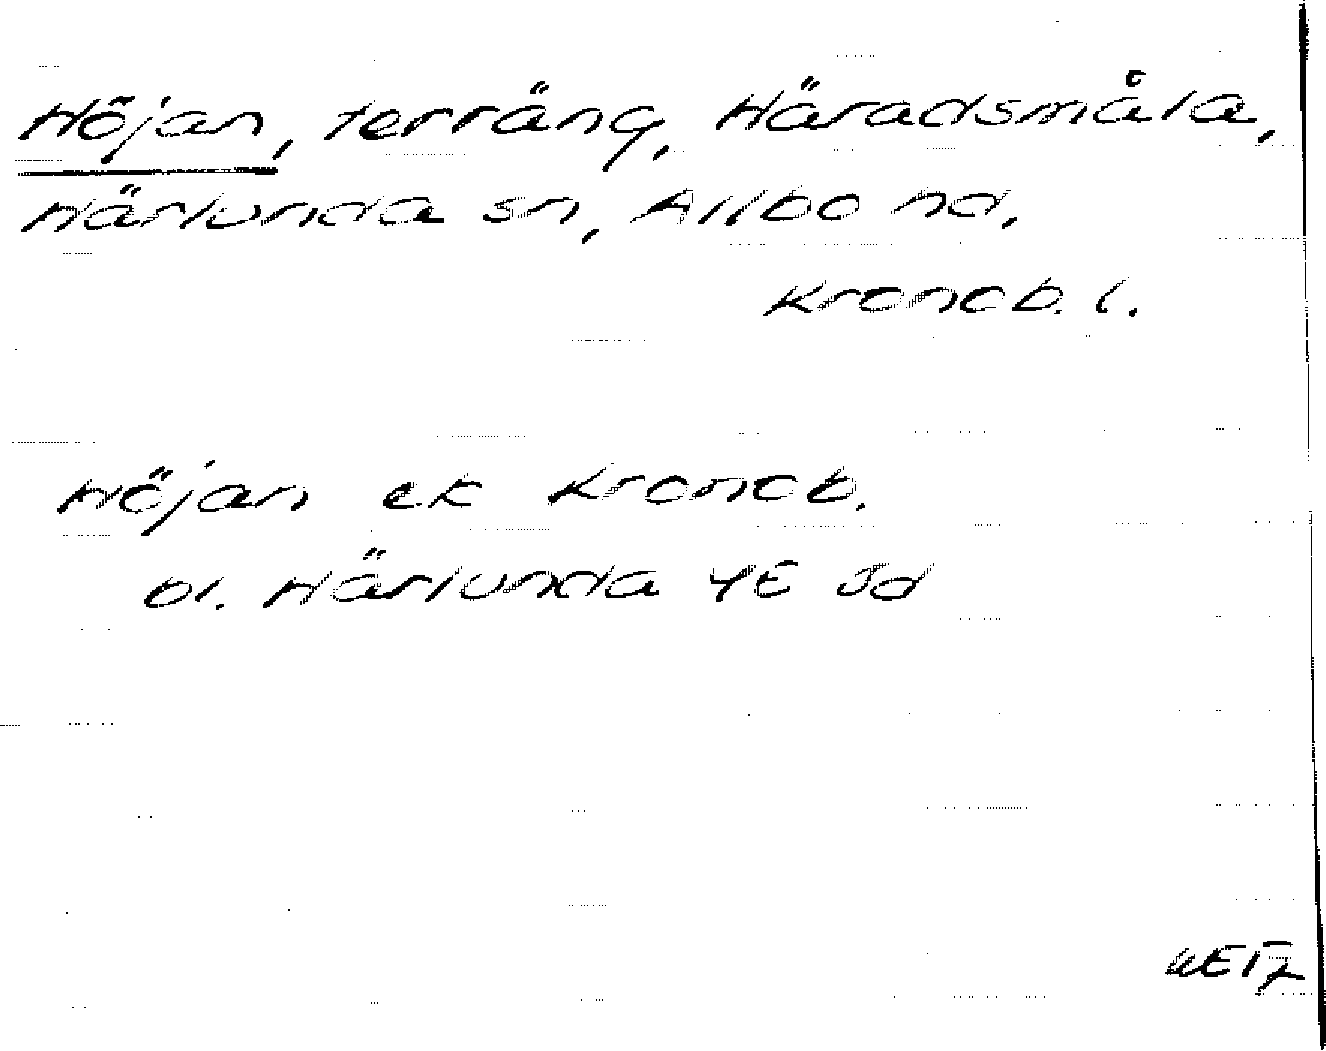 Höjan, terräng, Häradsmåla,
Härlunda sn, Allbo hd,
Kronob. l.
Höjan ek Kronob.
bl. Härlunda 4E Jd